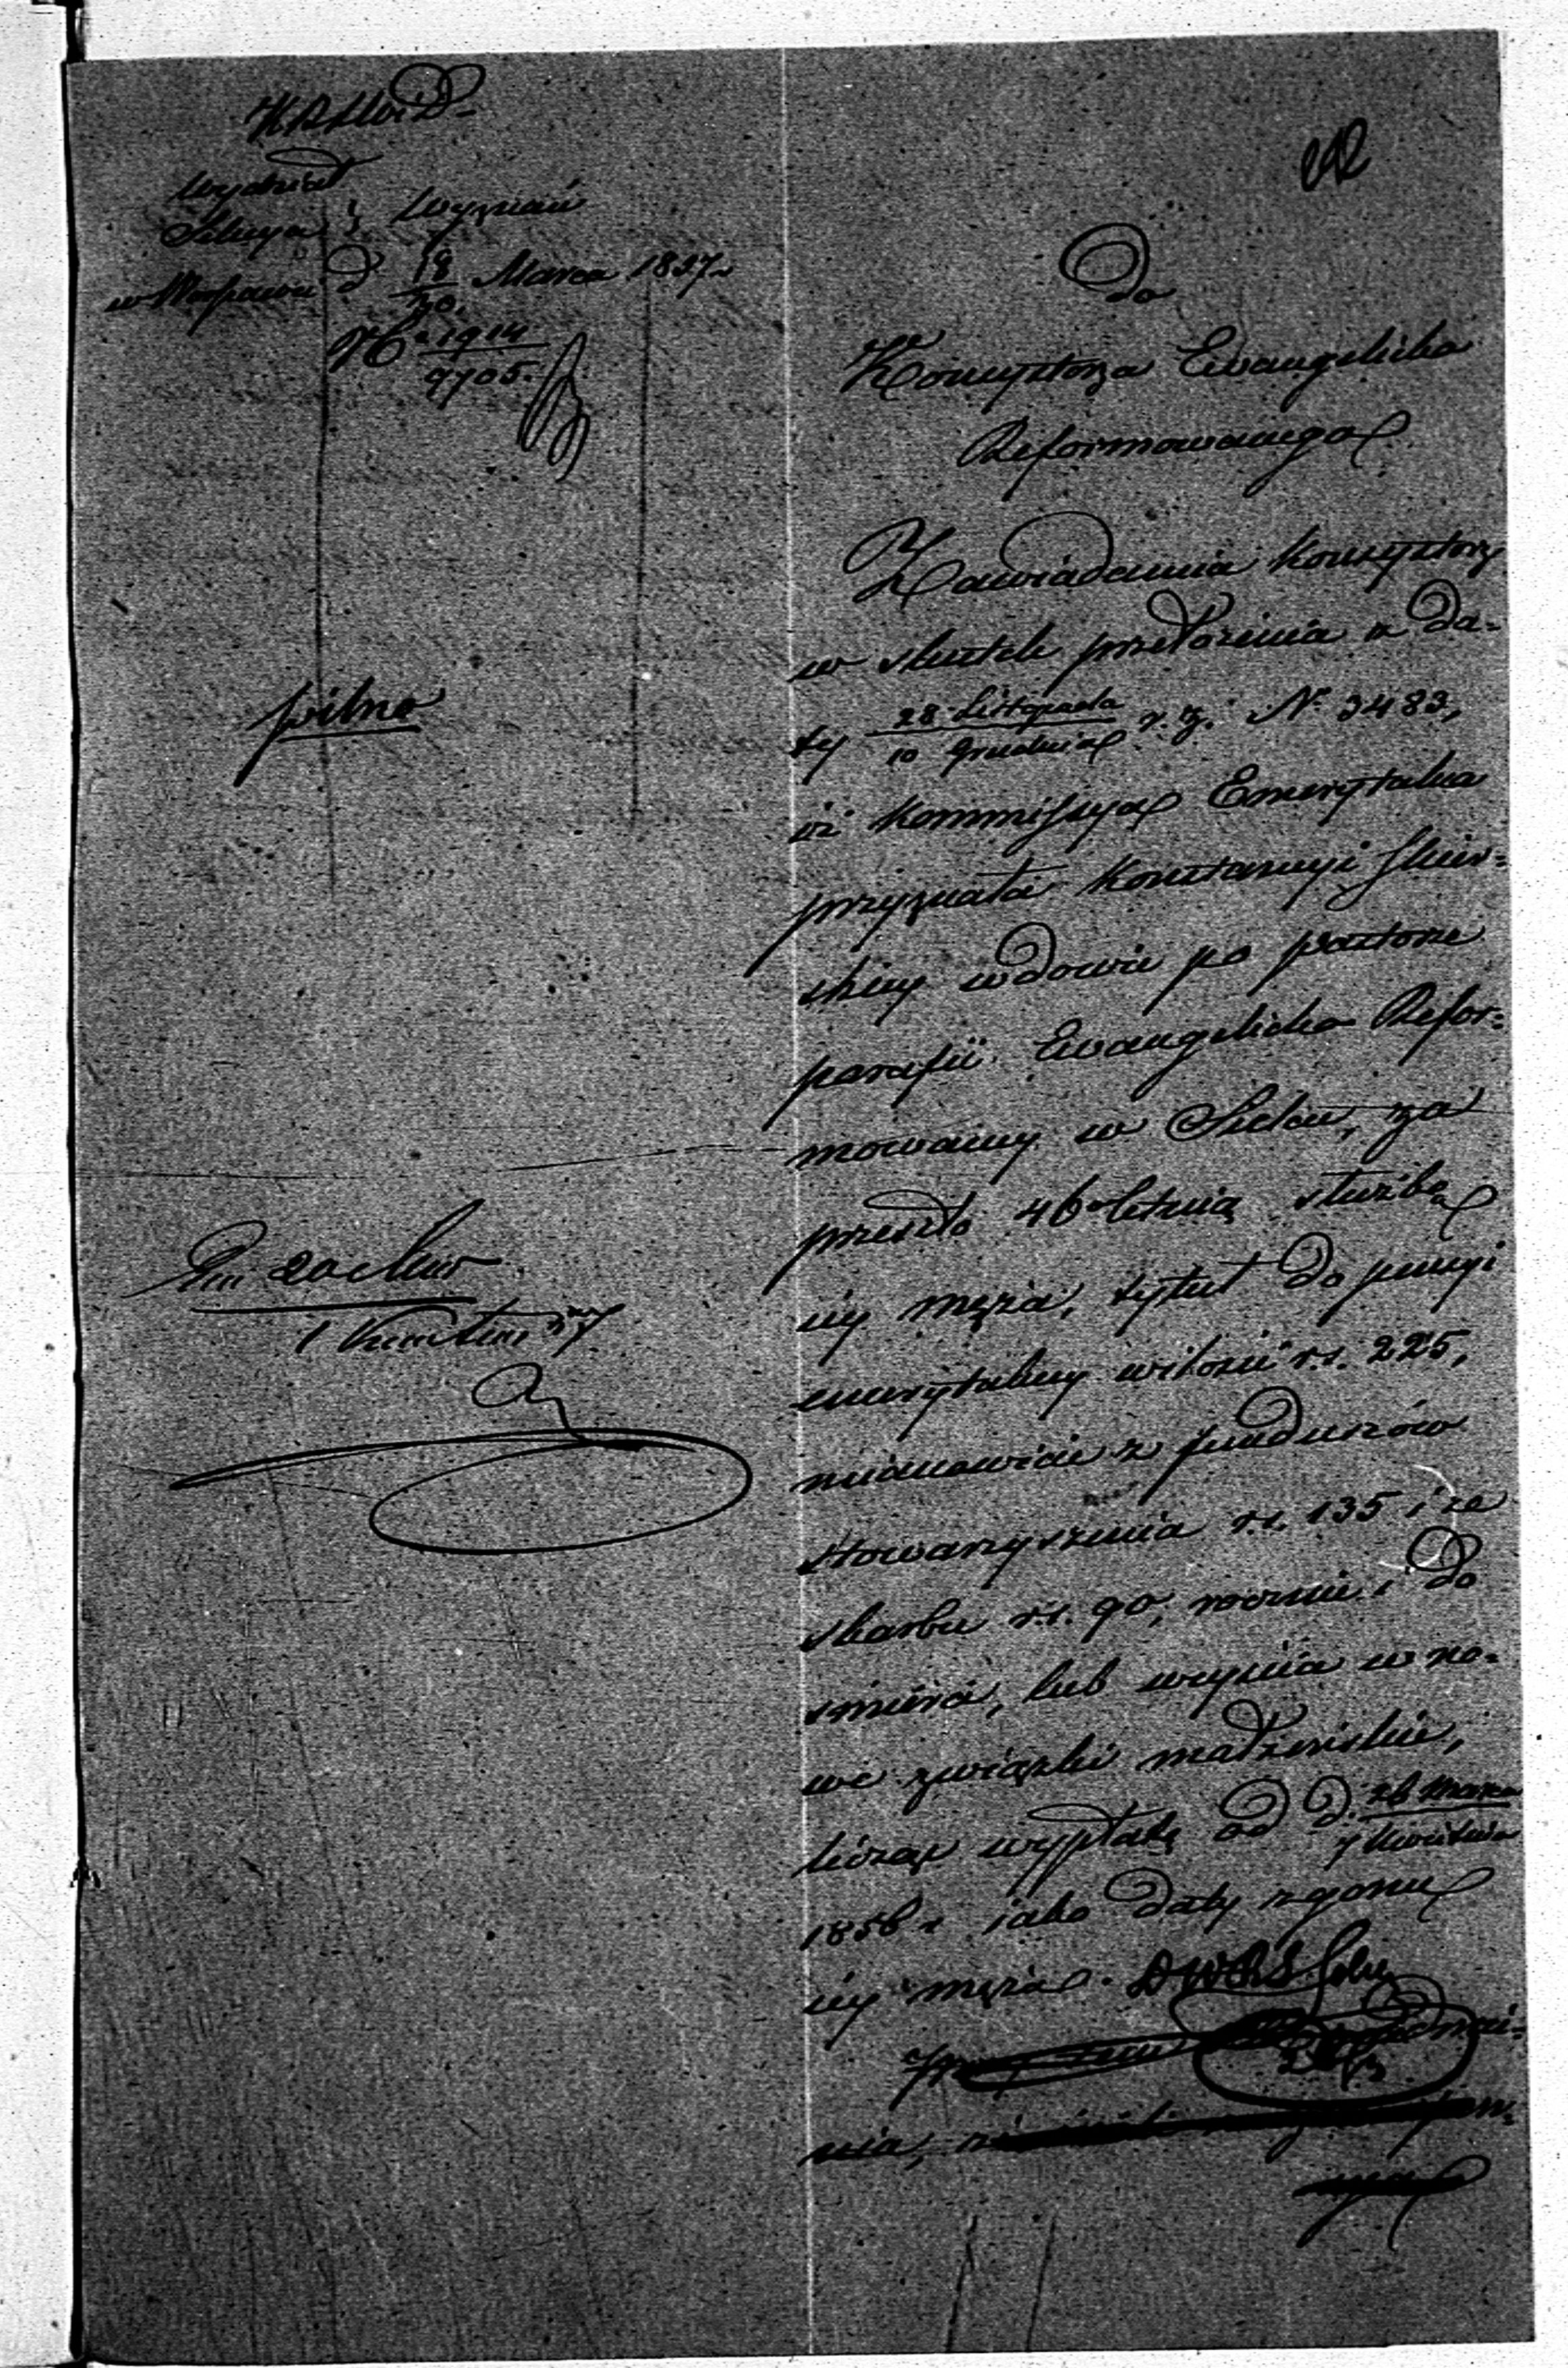 KRSWiD.
Wydział
Sekcya } Wyznań
w Warszawie d 18/30 Marca 1857.
N° 1914/9705.
Do
Konsystorza Ewangelicko
Reformowanego
Zawiadamia Konsystorz
w skutek przełożenia z da-
ty 28 Listopada/10 Grudnia r. z. N° 3483,
iż Kommissya Emerytalna
przyznała Konstancyi Skier-
skiey wdowie po pastorze
parafii Ewangelicko Refor-
mowaney w Sielcu, za
przeszło 46 letnią służbę
iey męża, tytuł do pensyi
emerytalney w ilości r.s. 225,
mianowicie z funduszów
stowarzyszenia r.s. 135 i ze
skarbu r.s. 90, rocznie i do
śmierci, lub weyścia w no-
we związki małżeńskie,
licząc wypłatę od d. 26 Marca/7 Kwietnia
1856 r iako daty zgonu
iey męża.
nia,
pilno